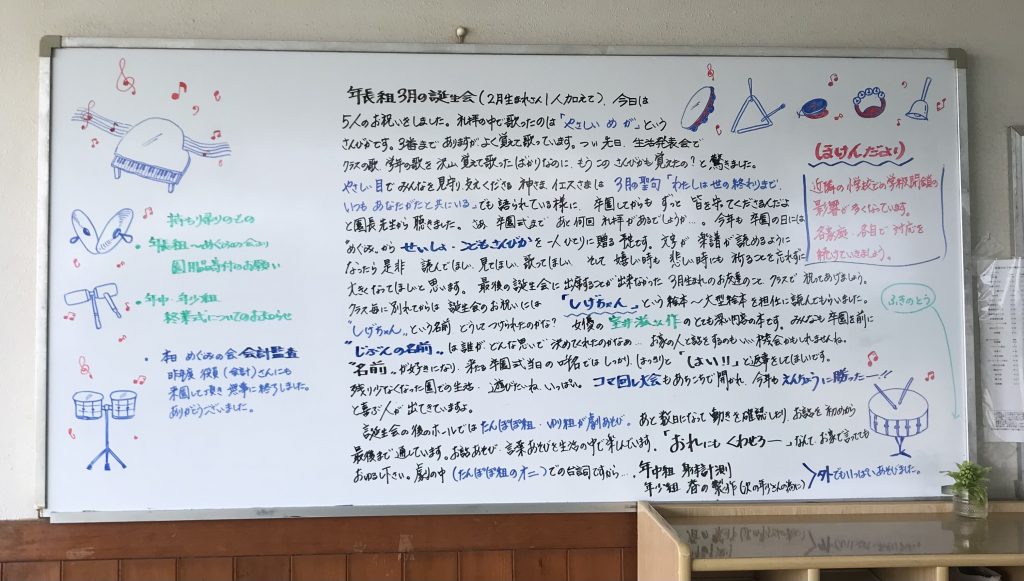 持ち帰りのもの
・年長組〜めぐみの会より
園用品寄付のお願い
・年中・年少組
終業式についてのおしらせ
・本日 めぐみの会 会計監査
昨年度 役員(会計)さんにも
来園して頂き 無事に終了しました。
ありがとうございました。
年長組3月の誕生会(2月生まれさん1人加えて)、今日は
5人のお祝いをしました。礼拝の中で歌ったのは「やさしいめが」という
さんびかです。3番まであますがよく覚えて歌っています。つい先日、生活発表会で
クラスの歌、学年の歌を沢山覚えて歌ったばかりなのに、もうこのさんびかも覚えたの?と驚きました。
やさしい目でみんなを見守り支えてくださる神さま、イエスさまは 3月の聖句「わたしは世の終わりまで、
いつもあなたがたと共にいる」でも語られている様に、卒園してからもずっと皆を守ってくださるんだよ
と園長先生から聴きました。さあ、卒園式まであと何回礼拝があるでしょうか…。今年も卒園の日には
"めぐみの会"から せいしょ・こどもさんびか を一人ひとりに贈る予定です。文字が楽譜が読めるように
なったら是非 読んでほしい、見てほしい、歌ってほしい、そして嬉しい時も悲しい時にも祈ることを忘れずに
大きくなってほしいと思います。最後の誕生会に出席することが出来なかった3月生まれのお友達のこと、クラスで祝ってあげましょう。
クラス毎に別れてからは誕生会のお祝いには「しげちゃん」という絵本〜大型絵本を担任に読んでもらいました。
"しげちゃん"という名前 どうしてつけられたのかな? 女優の室井滋さん作のとても深い内容の本です。みんなも卒園を前に
"じぶんの名前"は誰がどんな思いで決めてくれたのかなぁ…お家の人と話をするのもいい機会かもしれませんね。
"名前"が好きになり、来る卒園式当日の呼名ではしっかり、はっきりと「はい!!」と返事をしてほしいです。
残り少なくなった園での生活・遊びたいね、いっぱい。コマ回し大会もあちこちで開かれ、今年もえんちょうに勝ったー!!
と喜ぶ人が出てきていますよ。
誕生会の後のホールではたんぽぽ組・ゆり組が劇あそび。あと数日になって動きを確認したり、お話を初めから
最後まで通しています。お話あそび・言葉あそびを生活の中で楽しんでいます。「おれにもくわせろー」なんて、お家で言っても
お許し下さい。劇の中(たんぽぽ組のオニ)での台詞ですから…。
年中組 身体計測
年少組 春の製作(次の年少さんの為に)
〉外でもいっぱいあそびました。
ほけんだより
近隣の小学校での学級閉鎖の
影響が多くなっています。
各家庭、各自で対応を
続けていきましょう。
ふきのとう